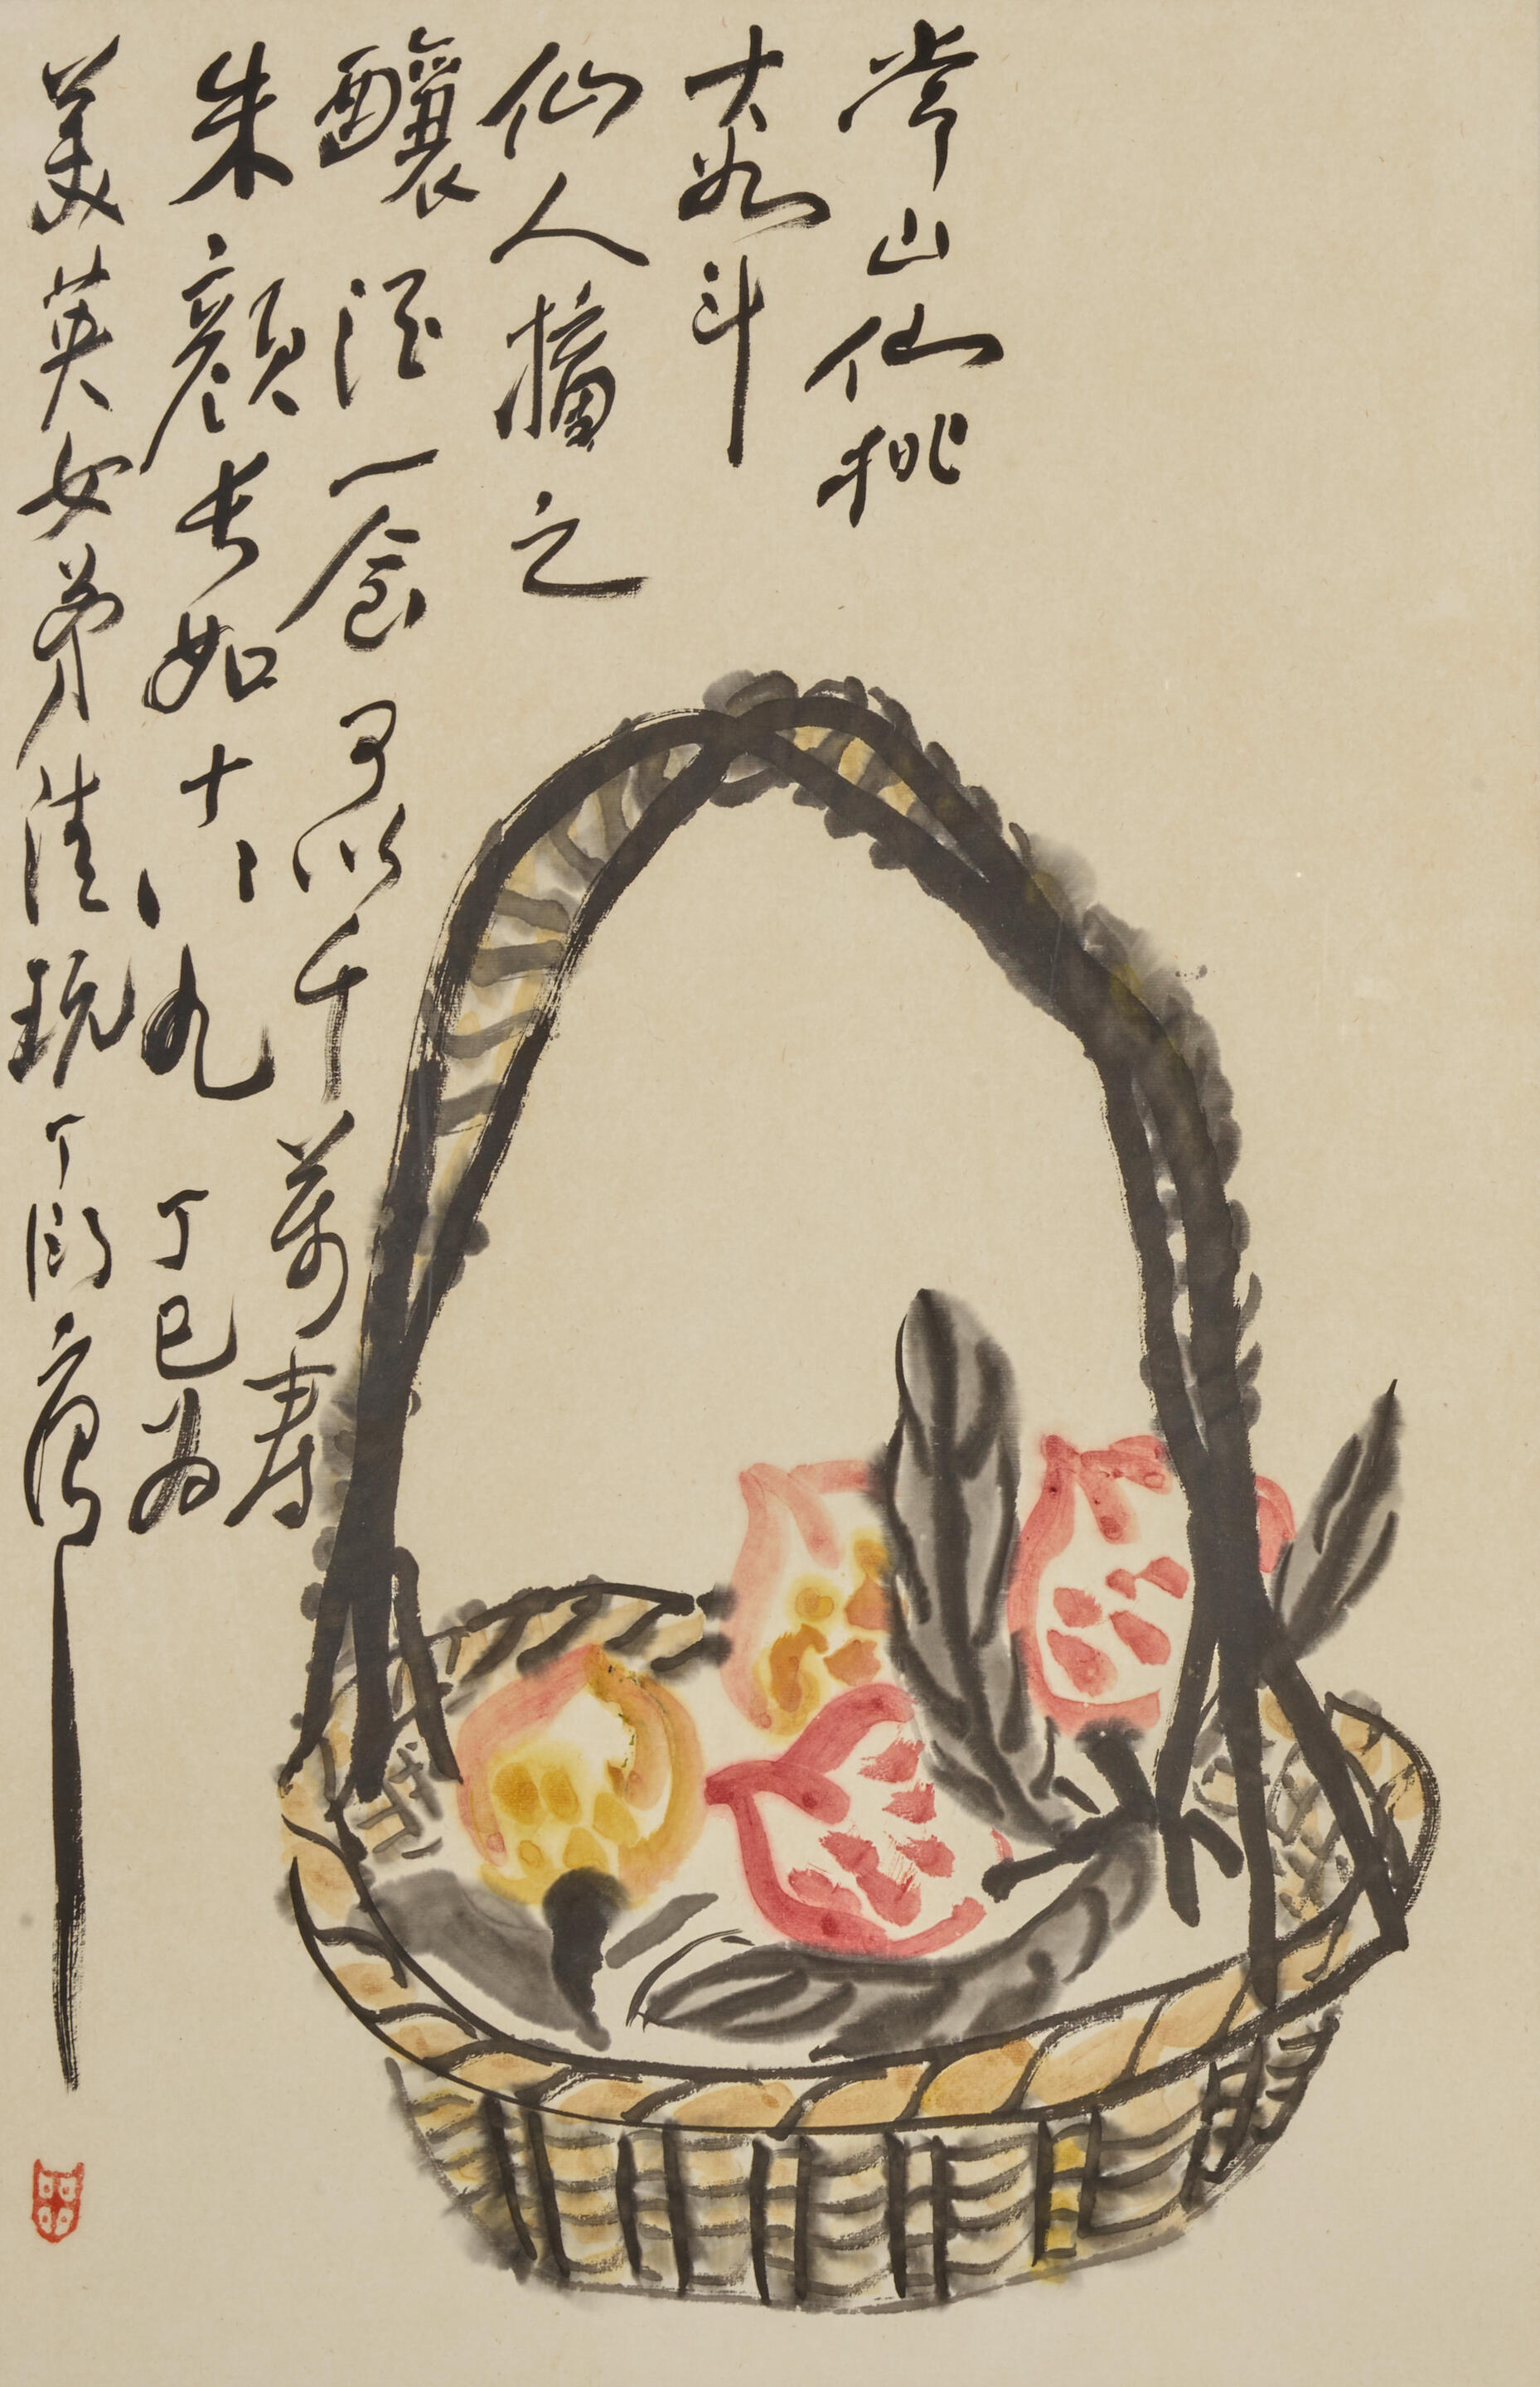 常山仙桃
大如斗
仙人摘之
釀酒一食可以千萬壽
朱顏長如十八九 丁巳為
美英女弟清玩丁衍庸